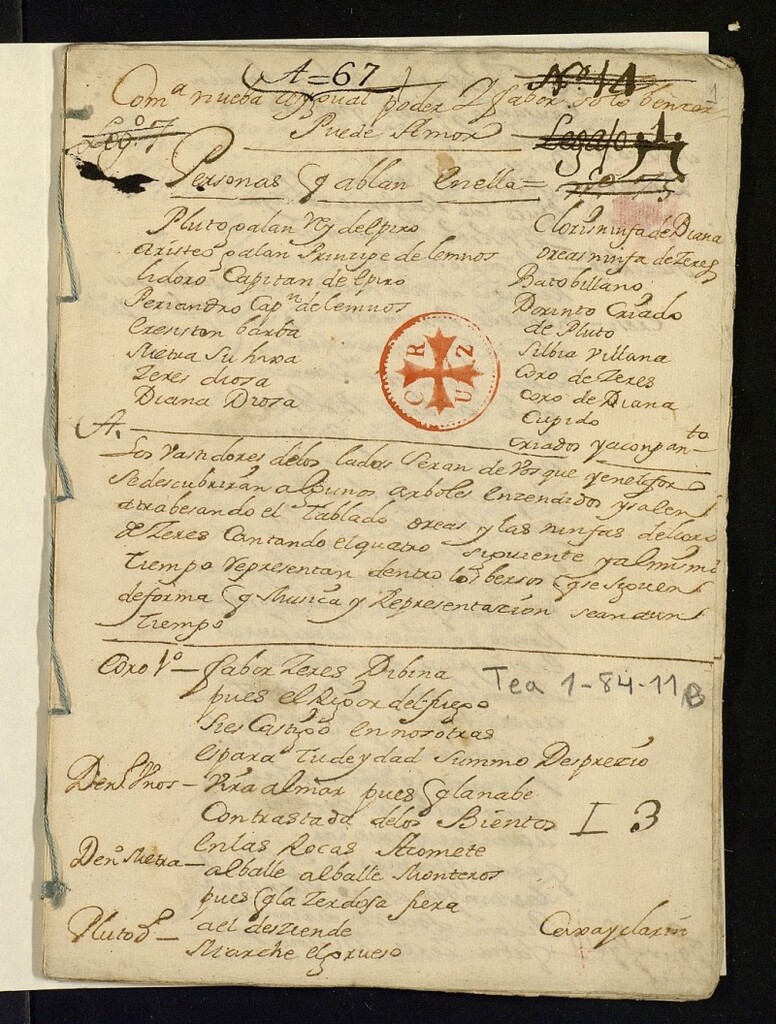 A=67
Nº 14
1
Comª nueba Con ygual poder y fabor solo benzer
Puede Amor
Leg.º 7
Legajo 1.
nº 15
Personas q ablan en ella =
Pluto galan Rey del epiro
Aristeo galan Principe de lemnos
Lidoro Capitan de epiro
Periandro Capn de lemnos
Eresiton barba
Metra su hixa
Zeres diosa
Diana Diosa
Cloris ninfa de Diana
Oreas ninfa de Zeres
Bato billano
Dorinto Criado
de Pluto
Silbia Villana
Coro de Zeres
coro de Diana
Cupido
criados y acompanto
CRUZ
A.
Los Vastidores de los lados seran de Bosque y en el foro
se descubrirán algunos arboles enzendidos y salen
atrabesando el tablado oreas y las ninfas del coro
de Zeres Cantando el quatro siguiente y al mismo
tiempo Representan dentro los bersos q se siguen
de forma q Musica y Representazion sean a un
tiempo
Coro 1º — fabor Zeres Dibina
Tea 1-84-11 B
pues el Rigor del fuego
si es Castigo en nosotras
es para tu deydad summo Desprezio
Den.º Unos — Vira al mar pues q la nabe
Contrastada de los Bientos
I 3
en las Rocas Acomete
Denº Metra — al balle al balle Monteros
pues q la Zerdosa fiera
Pluto dº — a el desziende
Caxa y clarin
Marche el grueso